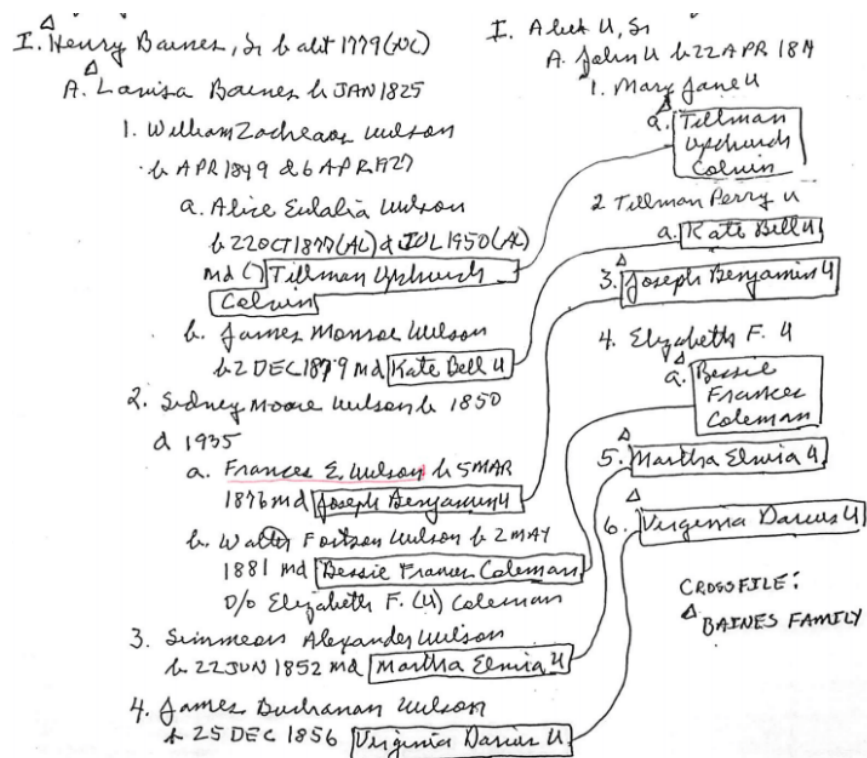 I. Henry Baines, Sr b abt 1779 (NC)
A. Lavisa Baines b JAN 1825
1. William Zacheaus Wilson
b APR 1849 d 6 APR 1927
a. Alice Eulalia Wilson
b 22 OCT 1877 (AL) d JUL 1950 (AL)
md () Tillman Upchurch
Colvin
b. James Monroe Wilson
b 2 DEC 1879 md Kate Bell U
2. Sidney Moore Wilson b 1850
d 1935
a. Frances E. Wilson b 5 MAR
1876 md Joseph Benjamin U
b. Walter Fortson Wilson b 2 MAY
1881 md Bessie Frances Coleman
D/o Elizabeth F. (U) Coleman
3. Simmeon Alexander Wilson
b 22 JUN 1852 md Martha Elmira U
4. James Buchanan Wilson
b 25 DEC 1856 Virginia Darius U
I. U, Sr
A. John U b 22 APR
1. Mary Jane U
a. Tillman
Upchurch
Colvin
2 Tillman Perry U
a. Kate Bell U
3. Joseph Benjamin U
4. Elizabeth F. U
a. Bessie
Frances
Coleman
5. Martha Elmira U
6. Virginia Darius U
CROSSFILE:
BAINES FAMILY